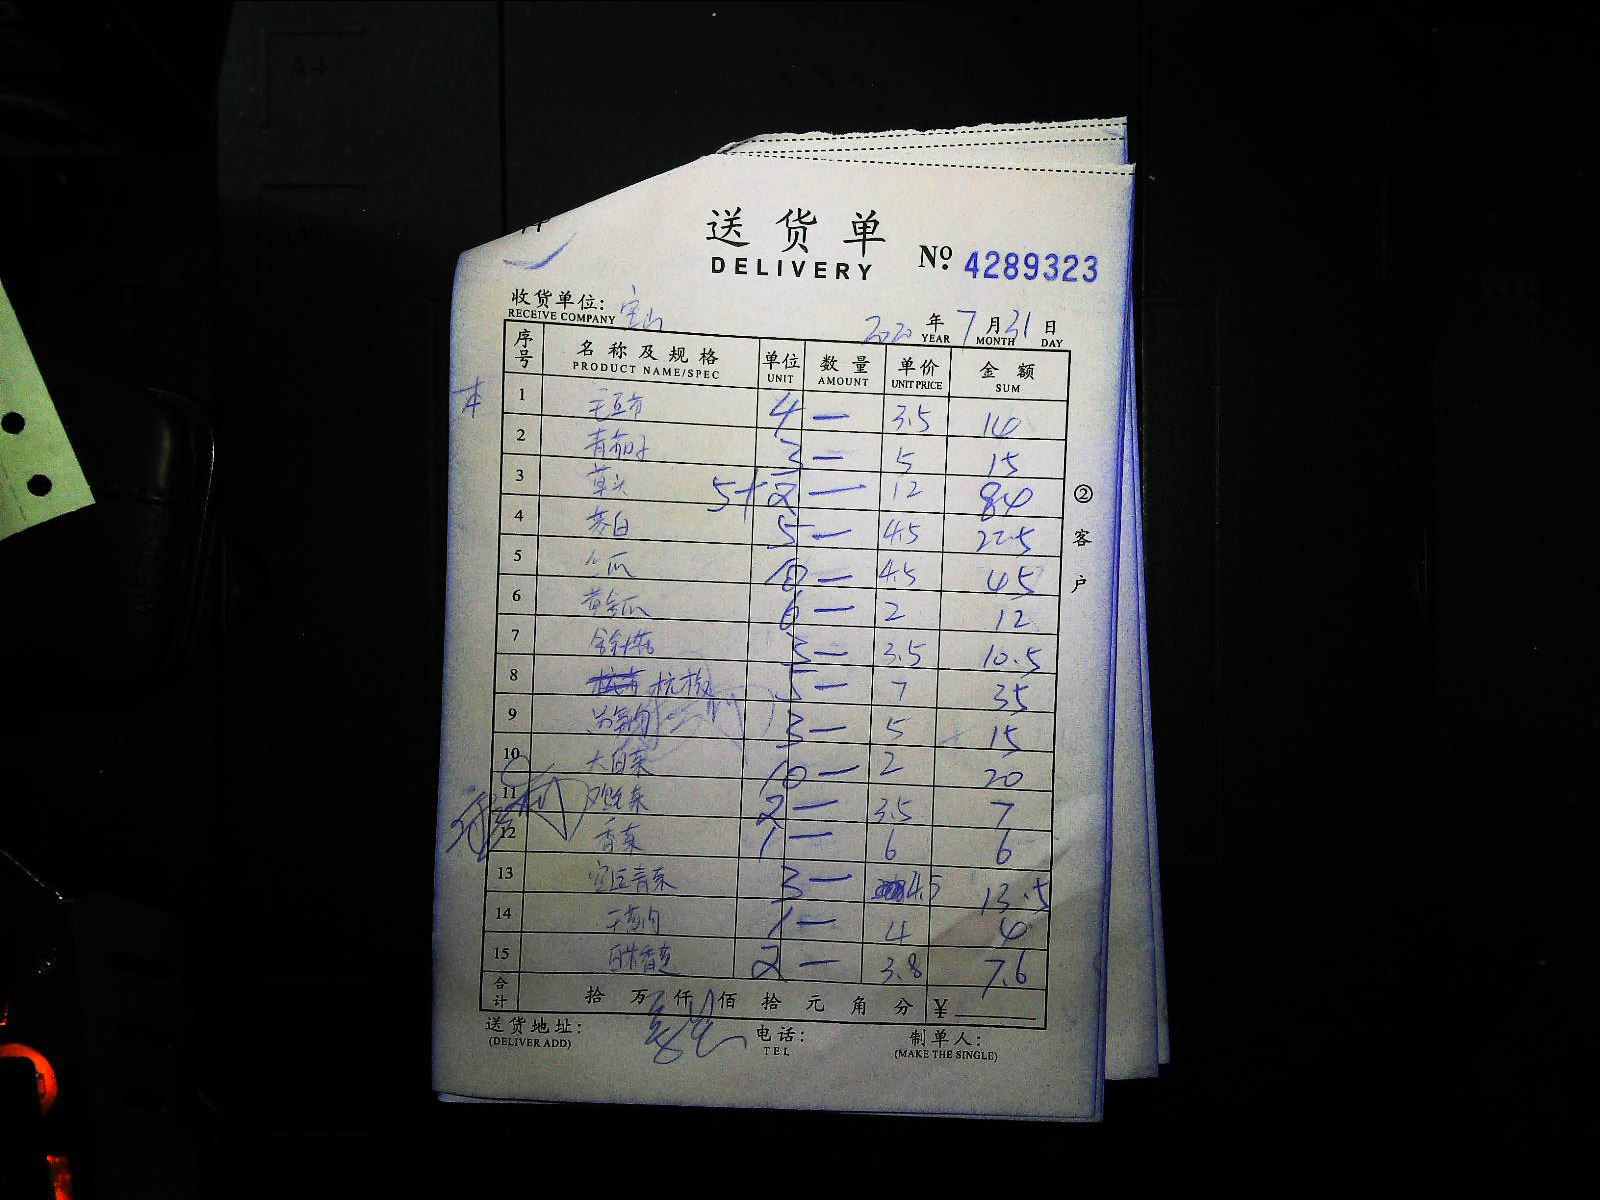 送货单
DELIVERY
No. 4289323
收货单位: 宝山
RECEIVE COMPANY
2020 年 7 月 31 日
YEAR MONTH DAY
序号 名称及规格 单位 数量 单价 金额
PRODUCT NAME/SPEC UNIT AMOUNT UNIT PRICE SUM
1 毛豆节 4 — 3.5 14
2 青茄子 3 — 5 15
3 草头 5+2 — 12 84
4 茭白 5 — 4.5 22.5
5 瓜 10 — 4.5 45
6 黄金瓜 6 — 2 12
7 金针菇 3 — 3.5 10.5
8 杭椒 5 — 7 35
9 3 — 5 15
10 大白菜 10 — 2 20
11 菜 2 — 3.5 7
12 香菜 1 — 6 6
13 青菜 3 — 4.5 13.5
14 1 — 4 4
15 2 — 3.8 7.6
合计 拾 万 仟 佰 拾 元 角 分 ¥
送货地址: 电话: 制单人:
(DELIVER ADD) TEL (MAKE THE SINGLE)
② 客户